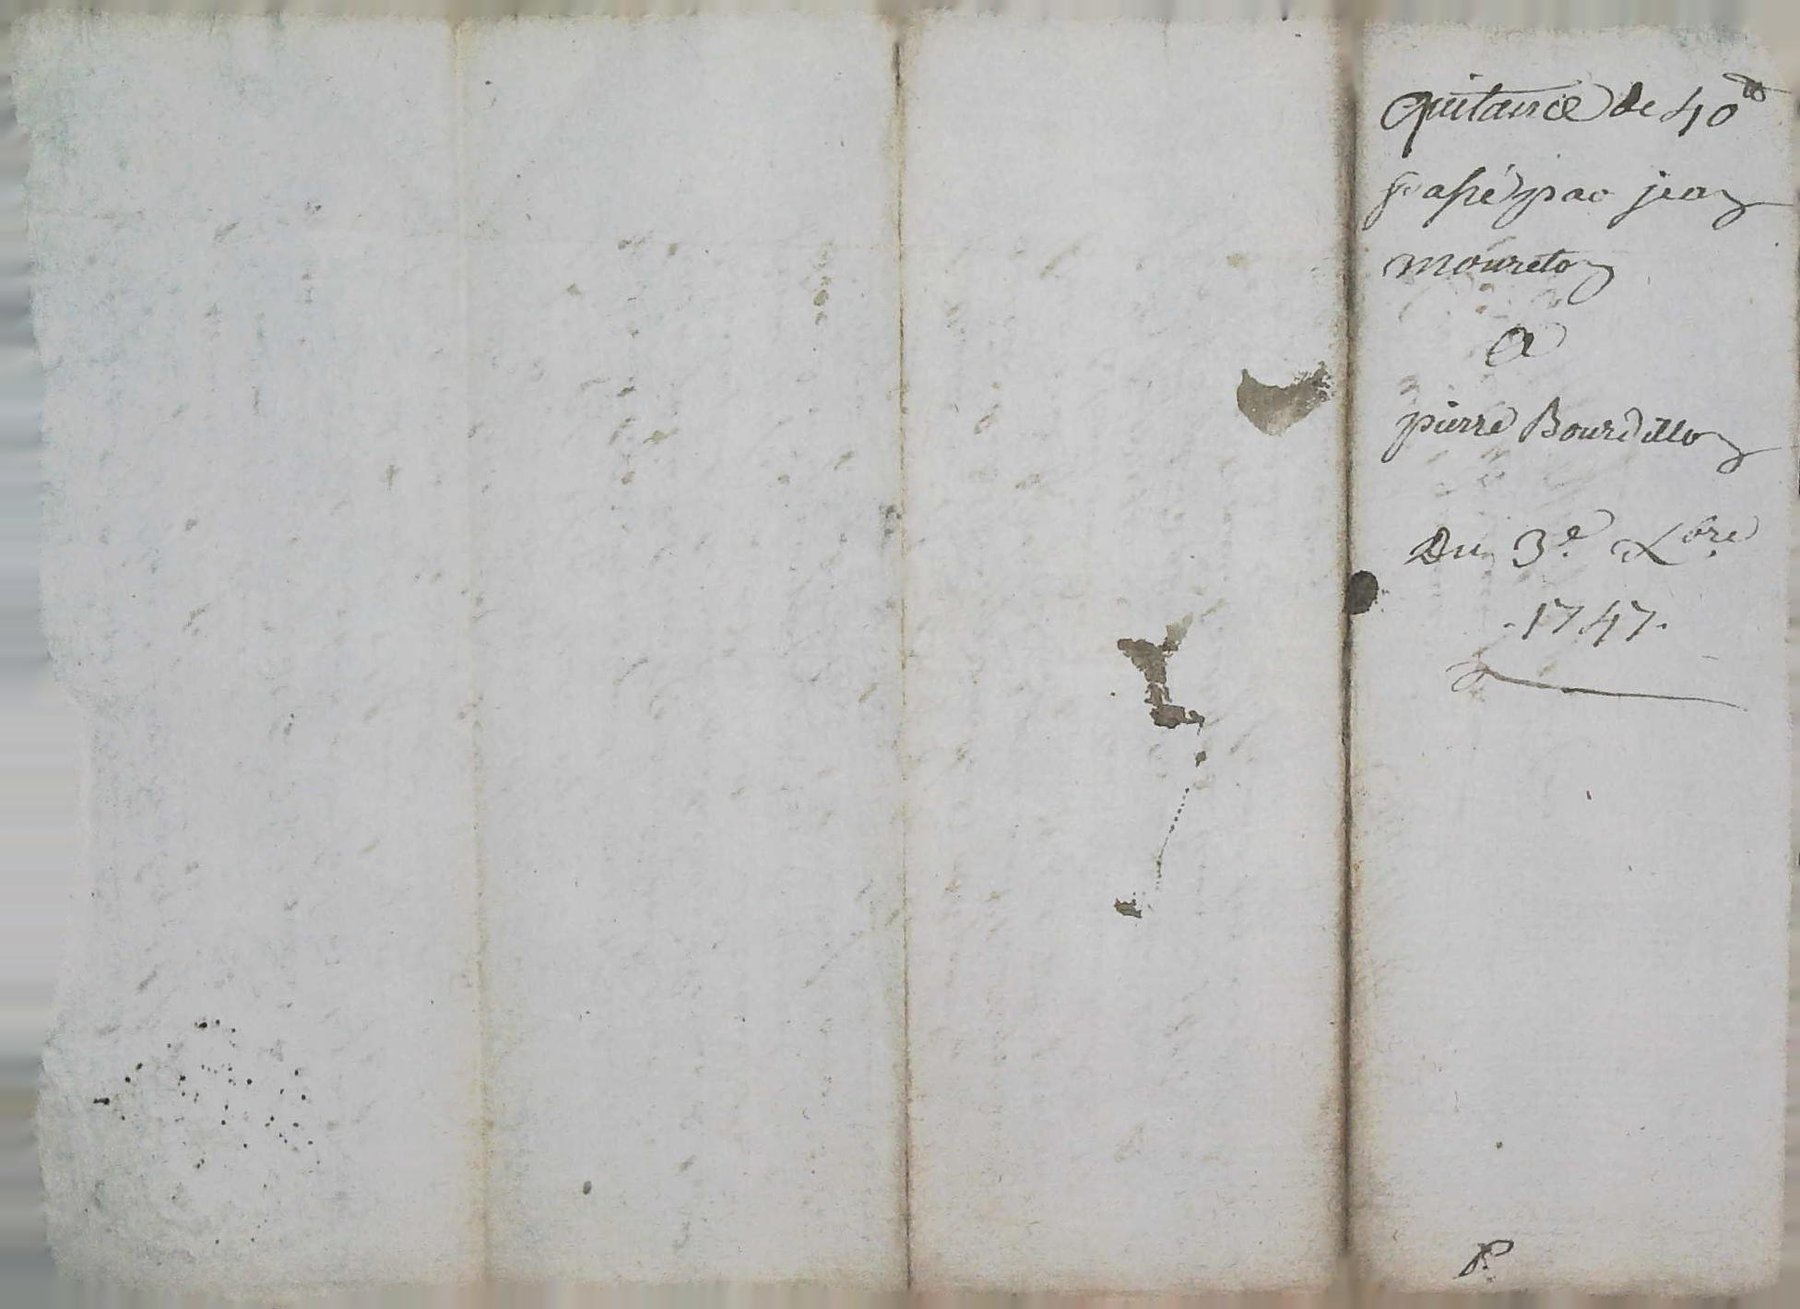 quitance de 40 ₶
passé par jean
moureton
a
pierre Bourdillon
Du 3e. Xbre.
.1747.